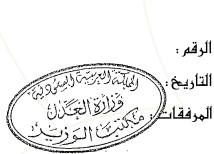 الرقم :
التاريخ :
المرفقات :
المملكة العربية السعودية
وزارة العدل
مكتب الوزير